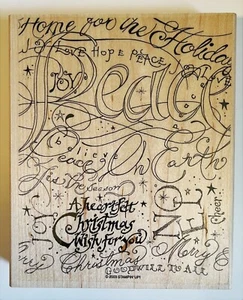 Home for the Holidays
LOVE HOPE PEACE JOY LOVE
JOY
Peace
Peace on Earth
'Tis the Season
A heartfelt
Christmas
Wish for you
JOY
JOY
NOEL
Cheer
Merry
Christmas
GOODWILL TO ALL
© 2003 STAMPIN' UP!